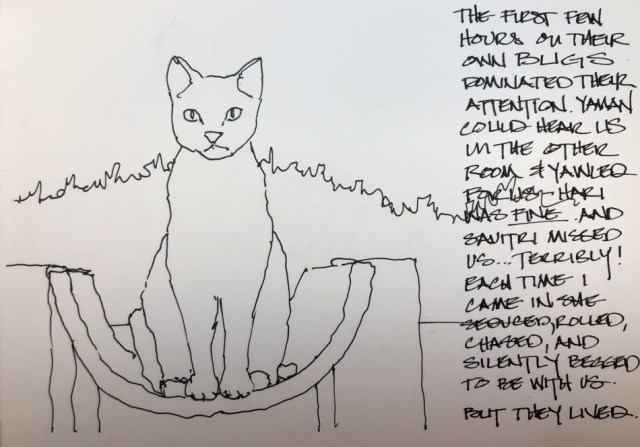 THE FIRST FEW
HOURS ON THEIR
OWN BLIGS
DOMINATED THEIR
ATTENTION. YAMAN
COULD HEAR US
IN THE OTHER
ROOM & YAWLED
FOR US. HARI
WAS FINE. AND
SAVITRI MISSED
US... TERRIBLY!
EACH TIME I
CAME IN SHE
SEDUCED, ROLLED,
CHASED, AND
SILENTLY BEGGED
TO BE WITH US.
BUT THEY LIVED.